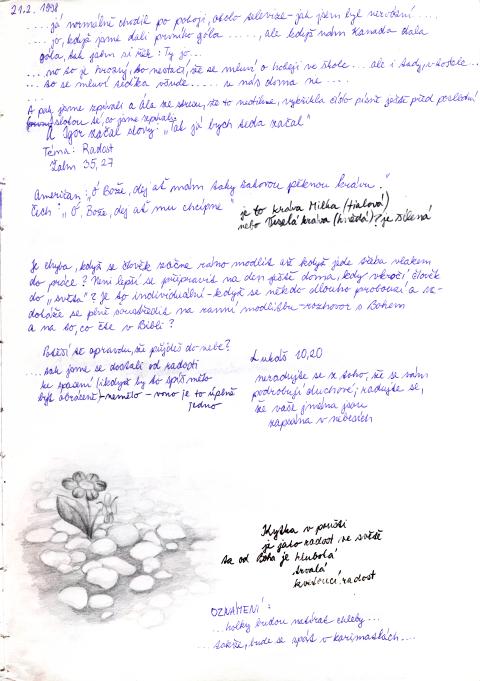 21.2. 1998
....já normálně chodil po pokoji, okolo televize - jak jsem byl nervózní.....
....jo, když jsme dali prvního góla......, ale když nám Kanada dala
góla, tak jsem si řek: Ty jo...
...no to je hrozný, to nestačí, že se mluví o hokeji ve škole...ale i tady, v kostele...
...to se mluví všude.... u nás doma ne ....
...
A pak jsme zpívali a ála ze stresu, že to nestihne, vykřikla číslo písně ještě před poslední
slokou se, co jsme zpívali
A Igor začal slovy: "Tak já bych teda začal"
Téma: Radost
Žalm 35,27
Američan: "Ó Bože, dej ať mám taky takovou pěknou krávu."
Čech: "Ó, Bože, dej ať mu chcípne"
je to kráva Milka (fialová)
nebo Veselá kráva (hnědá)? je zelená
Je chyba, když se člověk začne ráno modlit až když jede třeba vlakem
do práce? Není lepší se připravit na den ještě doma, kdy vkročí člověk
do "světa"? Je to individuální - když se někdo dlouho probouzí a ne-
dokáže se plně soustředit na ranní modlitbu - rozhovor s Bohem
a na to, co čte v Bibli?
Těšíš se opravdu, že půjdeš do nebe?
....tak jsme se dostali od radosti
ke spasení (ikdyž by to spíš mělo
být obráceně) - nemělo - vono je to úplně
jedno
Lukáš 10,20
neradujte se z toho, že se vám
podrobují duchové; radujte se,
že vaše jména jsou
zapsána v nebesích
Kytka v poušti
je jako radost ve světě
ta od Boha je hluboká
trvalá
kvetoucí radost
OZNÁMENÍ:
...holky budou natírat chleby...
...takže, bude se spát v karimatkách....